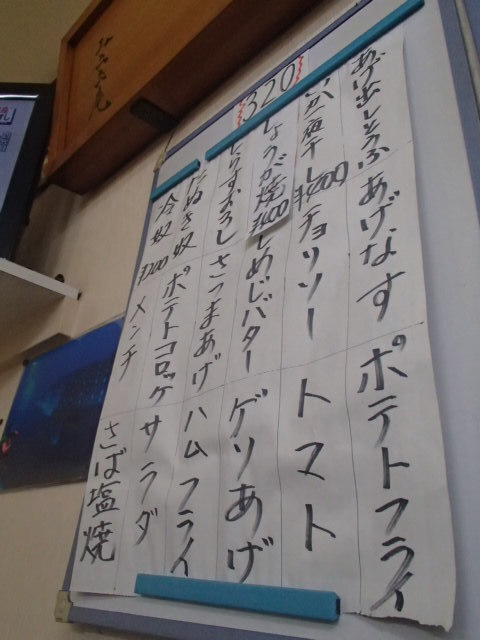 320
あげ出しとうふ あげなす ポテトフライ
いか一夜干し チョリソー トマト
しょうが焼 ¥400 しめじバター ゲソあげ
しらすおろし さつまあげ ハムフライ
たぬき奴 ポテトコロッケ サラダ
冷奴 ¥200 メンチ さば塩焼